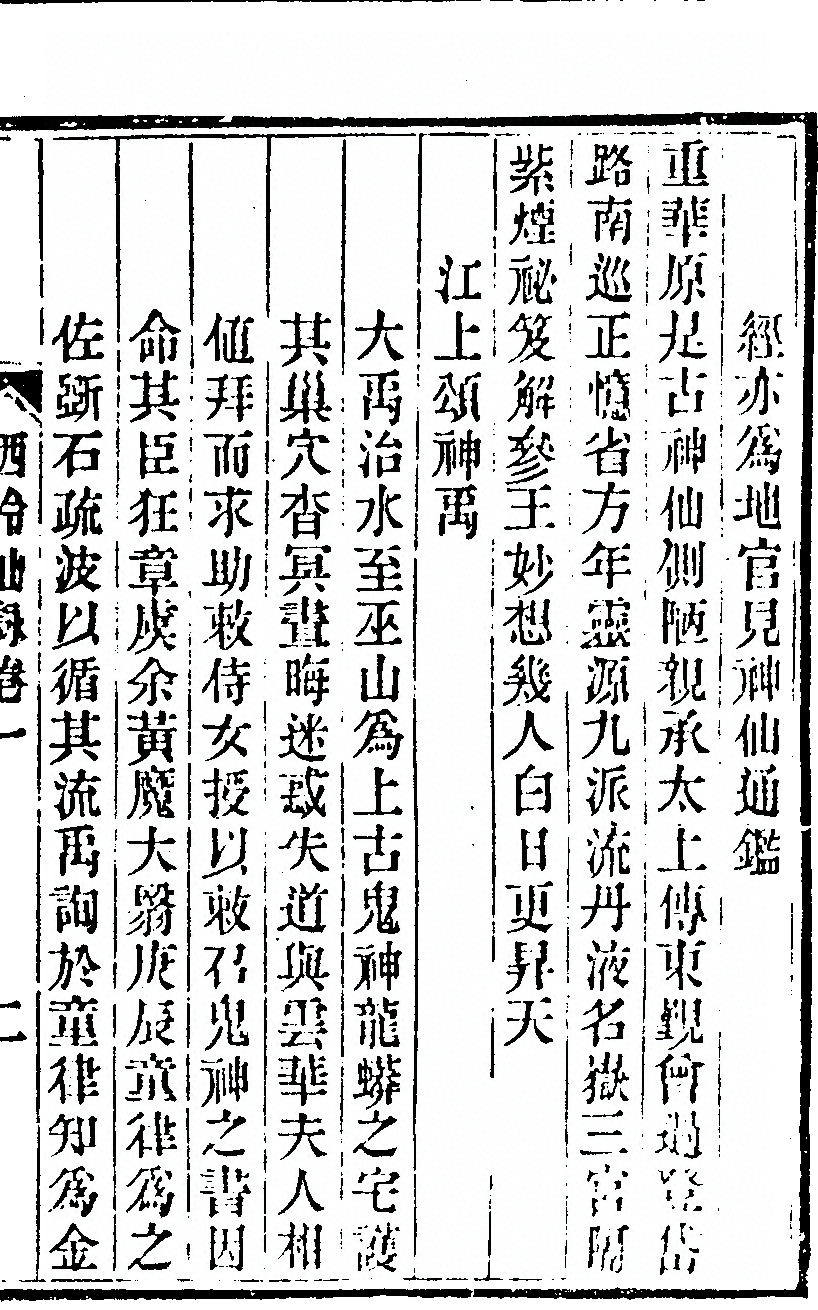 經亦為地官見神仙通鑑
重華原是古神仙側陋親承太上傳東覲曾過登岱
路南巡正憶省方年靈源九派流丹液名嶽三宮閟
紫煙祕笈解參王妙想幾人白日更昇天
江上頌神禹
大禹治水至巫山為上古鬼神龍蟒之宅護
其巢穴杳冥晝晦迷惑失道與雲華夫人相
値拜而求助敕侍女授以敕召鬼神之書因
命其臣狂章虞余黃魔大翳庚辰童律為之
佐斲石疏波以循其流禹詢於童律知為金
西泠仙錄卷一
二